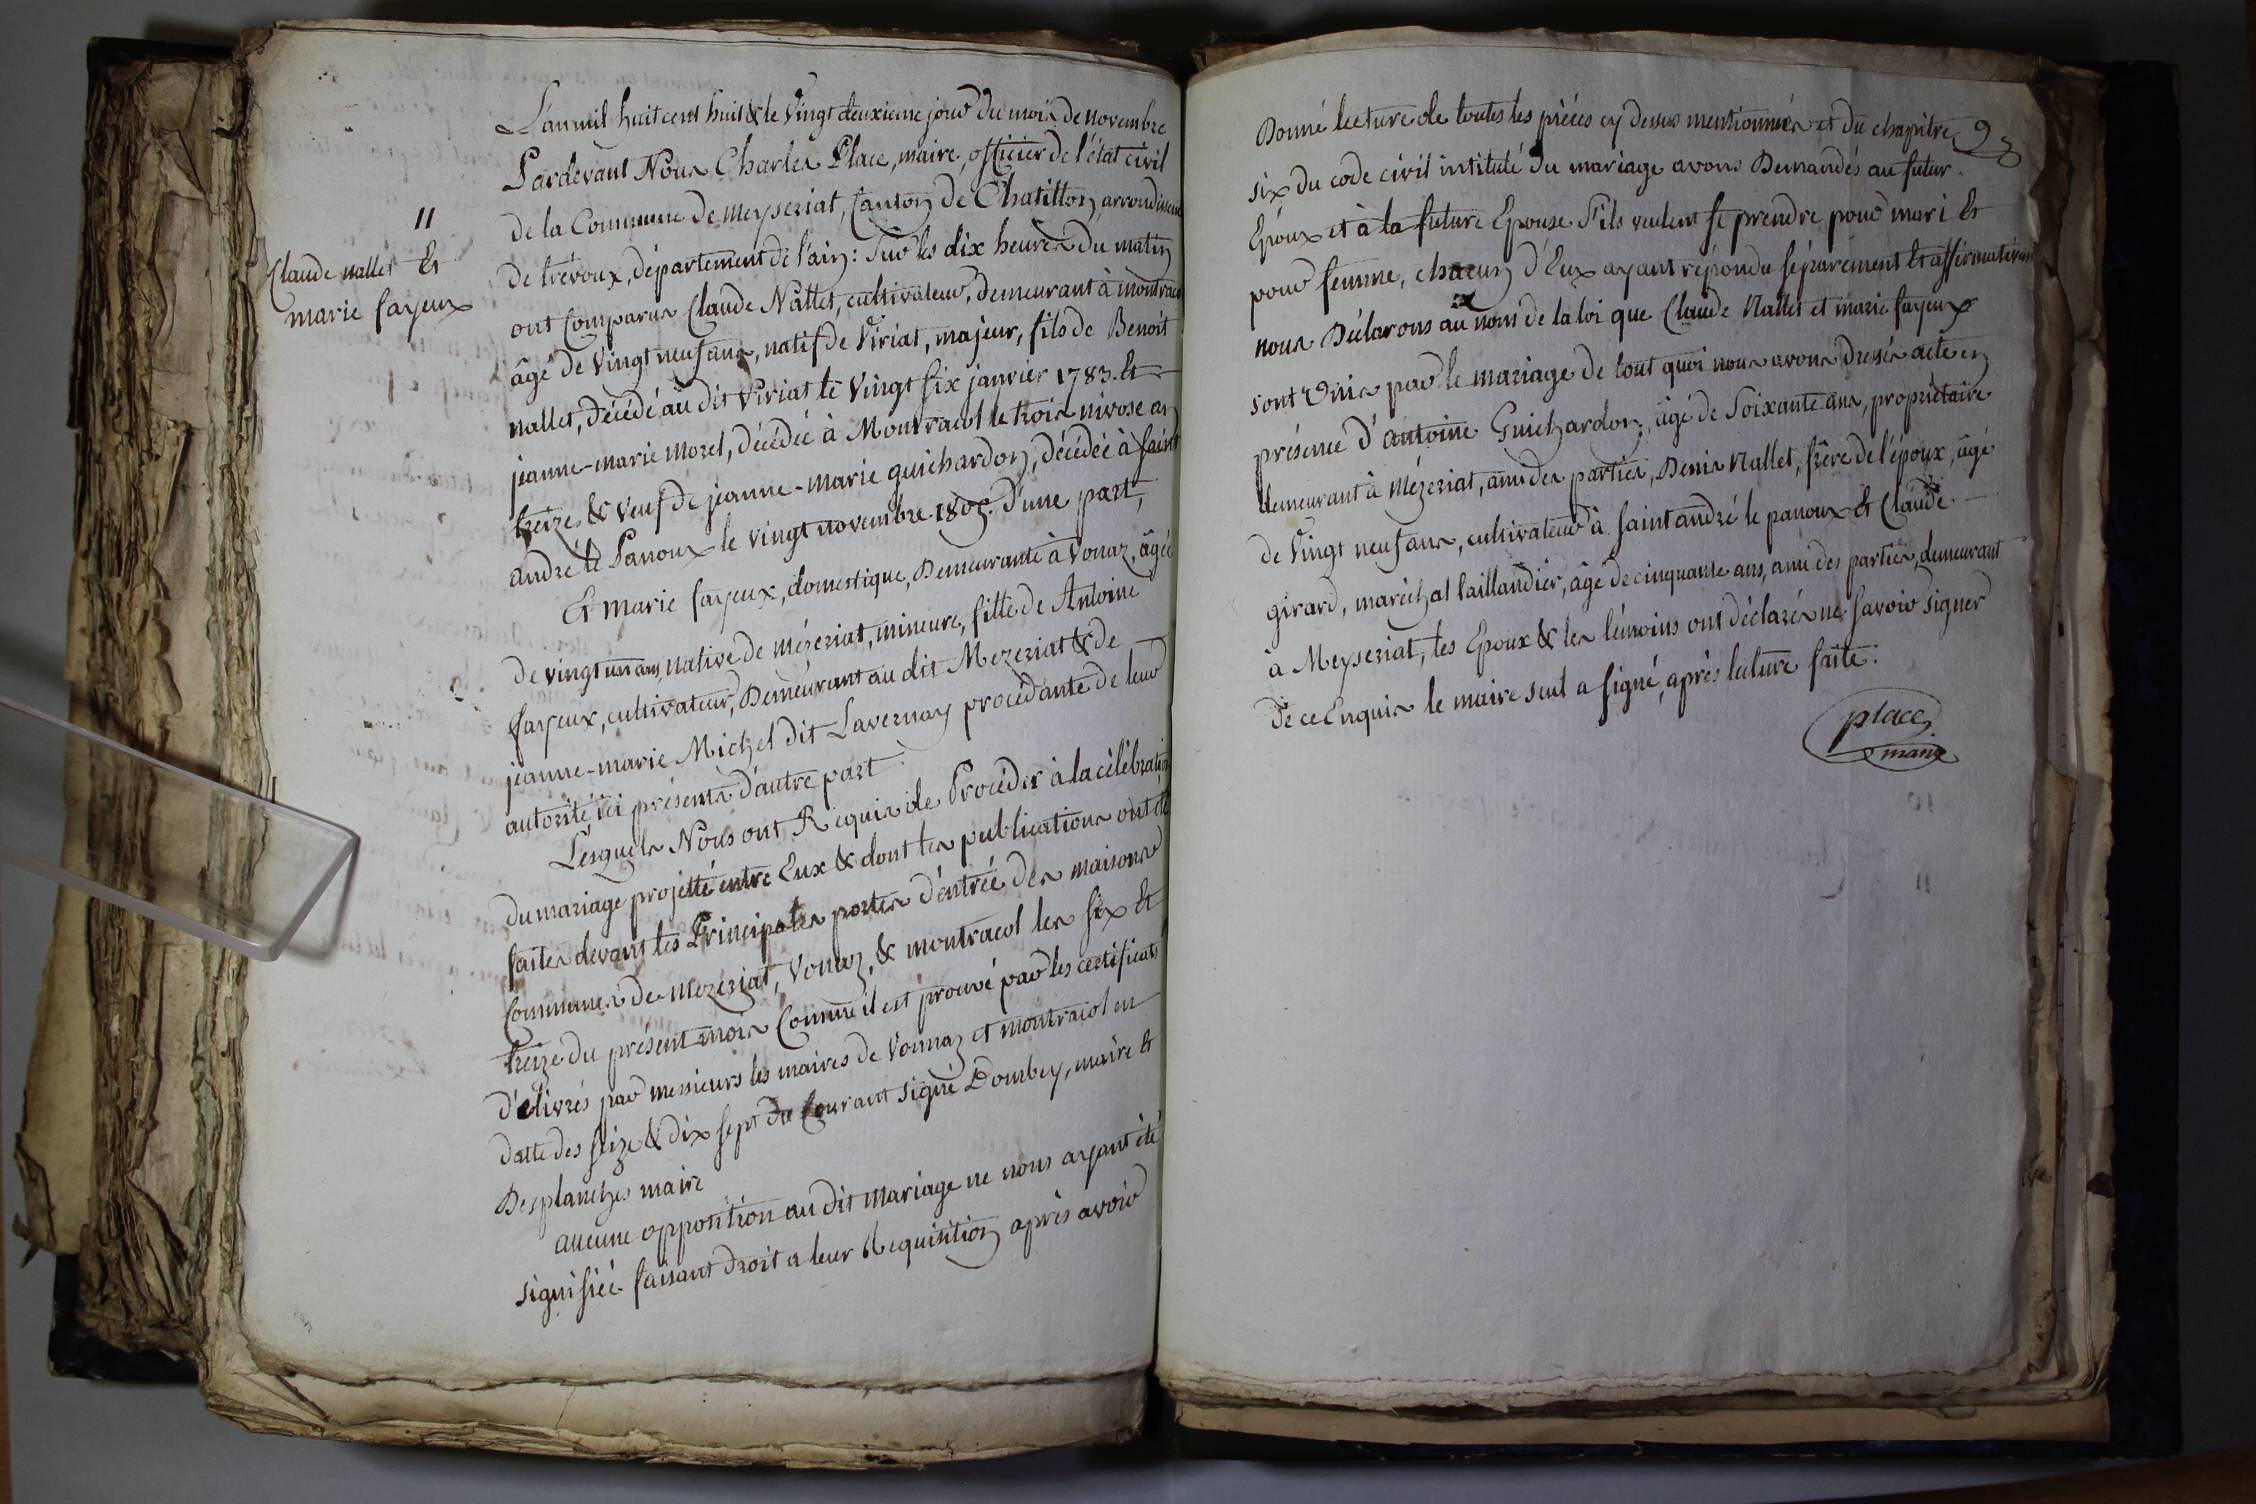 11
Claude nallet Et
marie fayeux
L'an mil huit cent huit & le Vingt deuxieme jour du mois de novembre
Pardevant Nous Charles Place, maire, officier de l'état civil
de la Commune de meyseriat, Canton de Chatillon, arrondissem
de trévoux, département de l'ain : Sur les dix heures du matin
ont Comparus Claude Nallet, cultivateur, demeurant à montracol
âgé de Vingt neuf ans, natif de Viriat, majeur, fils de Benoit
nallet, décédé au dit Viriat le Vingt six janvier 1783. Et
jeanne-marie Morel, décédée à Montracol le trois nivose an
treize, & veuf de jeanne-marie guichardon, décédée à saint
andré le Panoux le vingt novembre 1807. D'une part,
Et Marie fayeux, domestique, Demeurante à Vonnaz, âgée
de vingt un ans, native de mézeriat, mineure, fille de Antoine
fayeux, cultivateur, Demeurant au dit Mezeriat & de
jeanne-marie Michel dit Lavernay procédante de leur
autorité ici présents d'autre part.
Lesquels Nous ont Requis de Procéder à la célébration
du mariage projetté entre Eux & dont les publications ont été
faites devant les Principales portes d'entrée des maisons
Communes de Mezériat, Vonnaz, & montracol les six Et
treize du présent mois Comme il est prouvé par les certificats
d'élivrés par messieurs les maires de Vonnaz et montracol en
datte des seize & dix sept du Courant signé Dombey, maire Et
Desplanches maire
aucune opposition au dit mariage ne nous ayant été
signifiée faisant Droit a leur Requisition après avoir
Donné lecture de toutes les pièces cy dessus mentionnées et du chapitre
six du code civil intitulé du mariage avons Demandés au futur
Epoux et à la future Epouse S'ils veulent se prendre pour mari Et
pour femme, chacun d'Eux ayant répondu séparément Et affirmativem
nous Déclarons au nom de la loi que Claude Nallet et marie fayeux
sont Unis par le mariage de tout quoi nous avons Dressés acte en
présence d'antoine Guichardon, âgé de Soixante ans, propriétaire
demeurant à Mézeriat, ami des parties, Denis Nallet, frère de l'époux, âgé
de Vingt neuf ans, cultivateur à saint andré le panoux Et Claude
girard, maréchal taillandier, âgé de cinquante ans, ami des parties, demeurant
à Meyseriat, les Epoux & les témoins ont déclarés ne savoir signer
de ce Enquis le maire seul a signé, après lecture faite.
place
maire